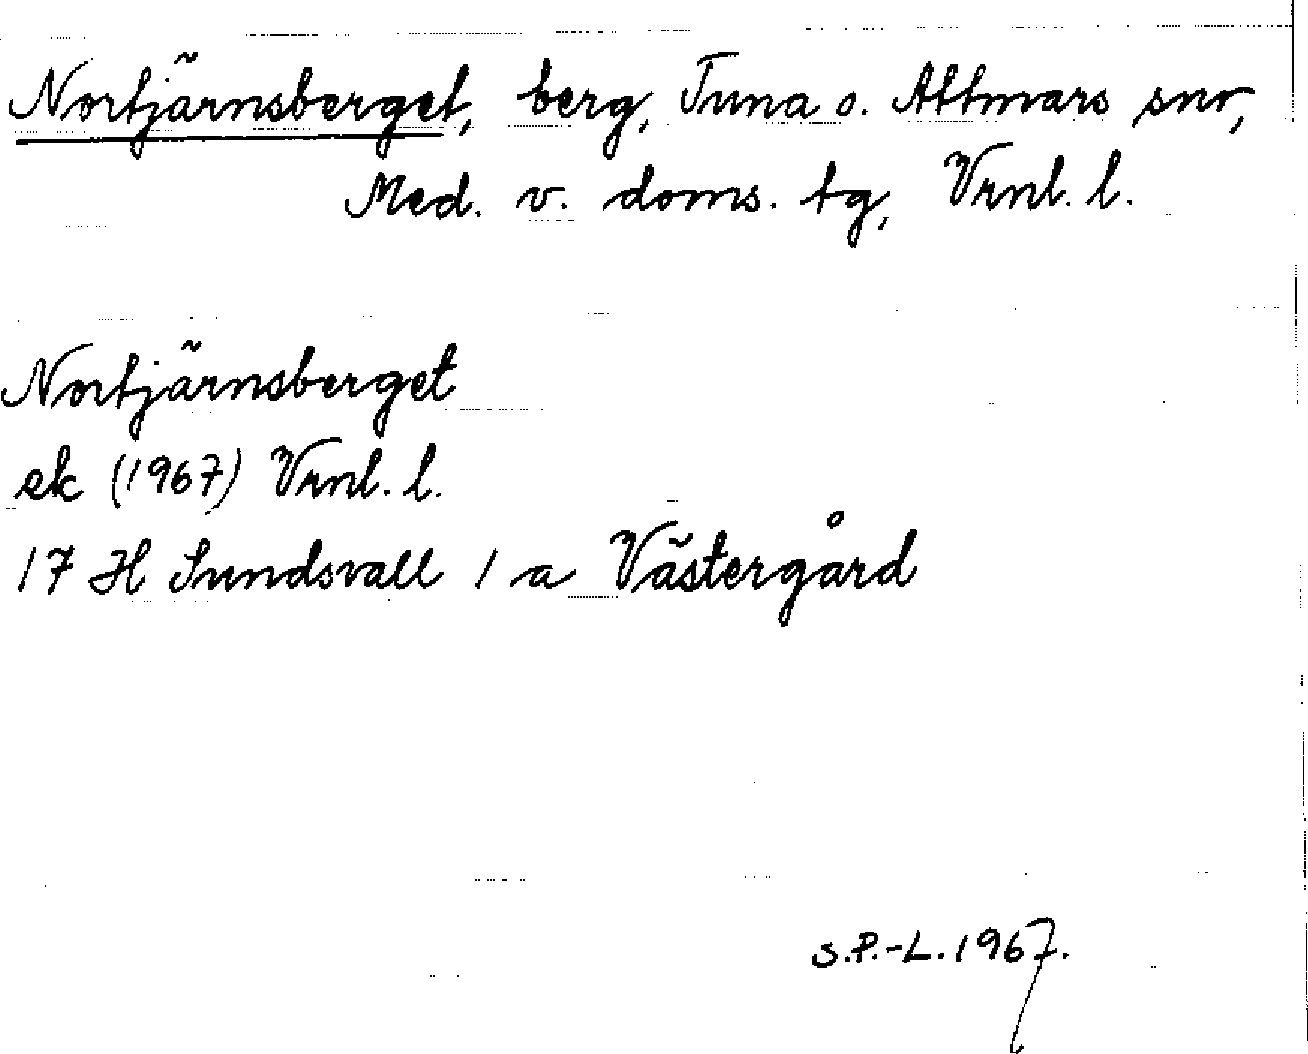 Nortjärnsberget, berg, Tuna o. Attmars snr,
Med. v. doms. tg, Vrnl. l.
Nortjärnsberget
ek (1967) Vrnl. l.
17 H Sundsvall 1 a Västergård
S.P.-L. 1967.